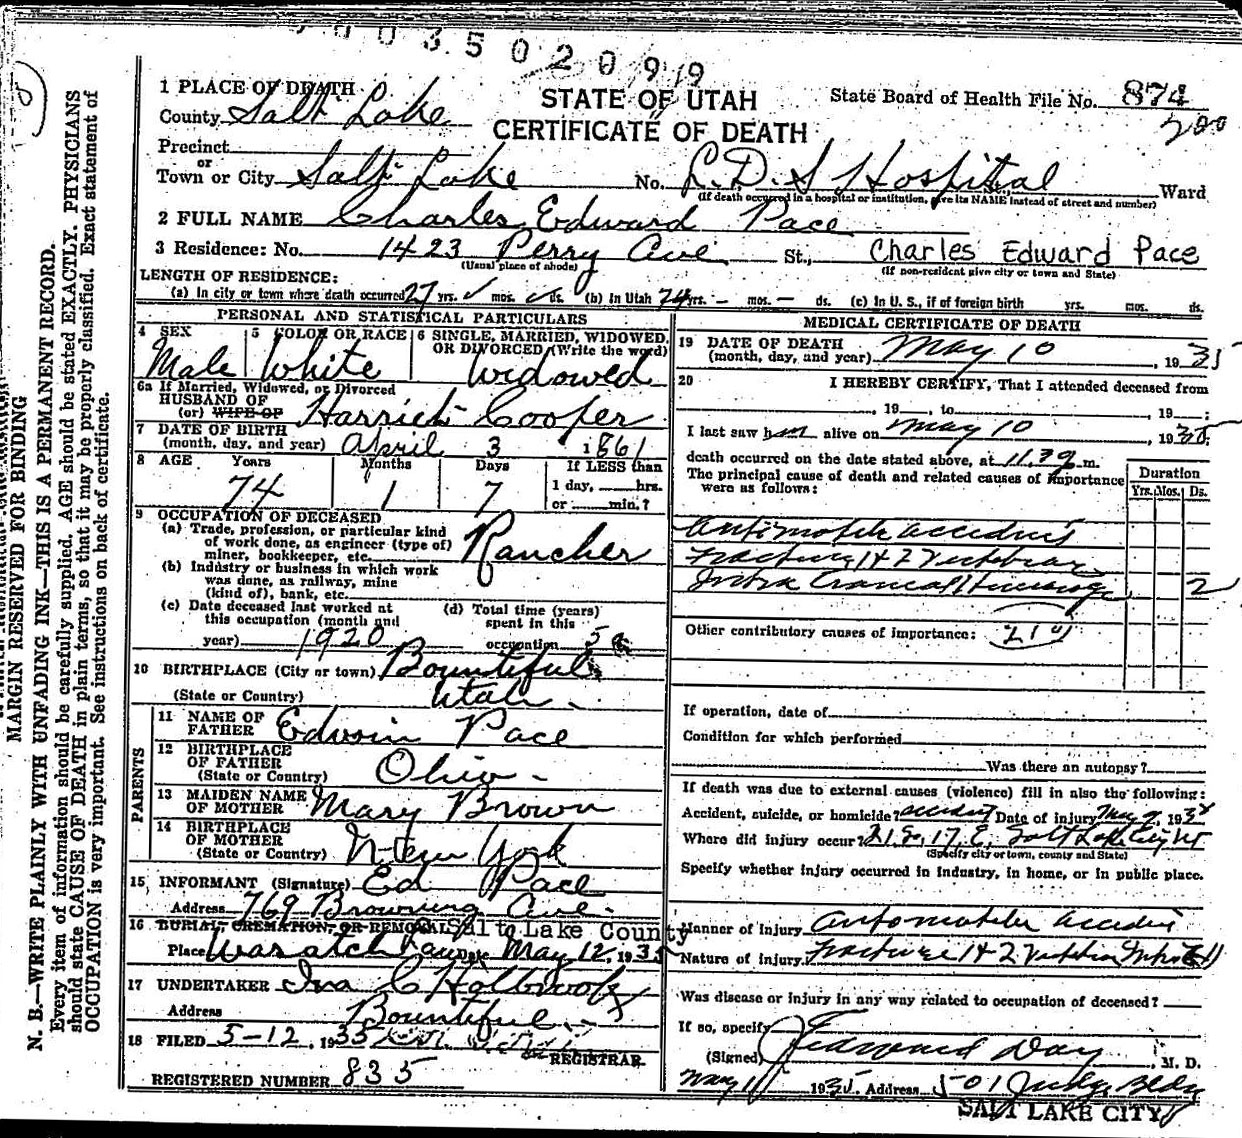 0035020999
1 PLACE OF DEATH
County Salt Lake
STATE OF UTAH
CERTIFICATE OF DEATH
State Board of Health File No. 874
200
Precinct
or
Town or City Salt Lake No. L.D.S Hospital Ward
(If death occurred in a hospital or institution, give its NAME instead of street and number)
2 FULL NAME Charles Edward Pace
3 Residence: No. 1423 Perry Ave St., Charles Edward Pace
(Usual place of abode) (If non-resident give city or town and State)
LENGTH OF RESIDENCE:
(a) In city or town where death occurred 27 yrs. mos. ds. (b) In Utah 74 yrs. - mos. - ds. (c) In U.S., if of foreign birth yrs. mos. ds.
PERSONAL AND STATISTICAL PARTICULARS
4 SEX
Male
5 COLOR OR RACE
White
6 SINGLE, MARRIED, WIDOWED, OR DIVORCED (Write the word)
Widowed
6a If Married, Widowed, or Divorced
HUSBAND OF
(or) WIFE OF Harriet Cooper
7 DATE OF BIRTH
(month, day, and year) April 3 1861
8 AGE Years Months Days If LESS than
74 1 7 1 day, hrs.
or min.?
9 OCCUPATION OF DECEASED
(a) Trade, profession, or particular kind of work done, as engineer (type of) miner, bookkeeper, etc. Rancher
(b) Industry or business in which work was done, as railway, mine (kind of), bank, etc.
(c) Date deceased last worked at this occupation (month and year) 1920
(d) Total time (years) spent in this occupation 50
10 BIRTHPLACE (City or town) Bountiful
(State or Country) Utah
PARENTS
11 NAME OF FATHER Edwin Pace
12 BIRTHPLACE OF FATHER
(State or Country) Ohio
13 MAIDEN NAME OF MOTHER Mary Brown
14 BIRTHPLACE OF MOTHER
(State or Country) New York
15 INFORMANT (Signature) Ed Pace
Address 769 Browning Ave.
16 BURIAL, CREMATION, OR REMOVAL Salt Lake County
Place Wasatch Lawn Date May 12, 1935
17 UNDERTAKER Ira C Holbrook
Address Bountiful
18 FILED 5-12, 1935
REGISTRAR
REGISTERED NUMBER 835
MEDICAL CERTIFICATE OF DEATH
19 DATE OF DEATH
(month, day, and year) May 10, 1935
20 I HEREBY CERTIFY, That I attended deceased from
, 19 , to , 19 ;
I last saw him alive on May 10, 1935;
death occurred on the date stated above, at 11.39 m.
The principal cause of death and related causes of importance were as follows:
Duration
Yrs. Mos. Ds.
Automobile accident
Fracture 1 & 2 Vertebrae
Intra Cranial Hemorrage 2
Other contributory causes of importance: 210
If operation, date of
Condition for which performed
Was there an autopsy?
If death was due to external causes (violence) fill in also the following:
Accident, suicide, or homicide? accident Date of injury May 9, 193
Where did injury occur? 21 So. 17 E. Salt Lake City Ut
(Specify city or town, county and State)
Specify whether injury occurred in industry, in home, or in public place.
Manner of Injury Automobile accident
Nature of Injury Fracture 1 & 2 Vertebra
Was disease or injury in any way related to occupation of deceased?
If so, specify
(Signed) Edward Day, M. D.
May 11 1935, Address 501 Judge Bldg
SALT LAKE CITY
MARGIN RESERVED FOR BINDING
N. B.—WRITE PLAINLY WITH UNFADING INK—THIS IS A PERMANENT RECORD.
Every item of information should be carefully supplied. AGE should be stated EXACTLY. PHYSICIANS
should state CAUSE OF DEATH in plain terms, so that it may be properly classified. Exact statement of
OCCUPATION is very important. See instructions on back of certificate.